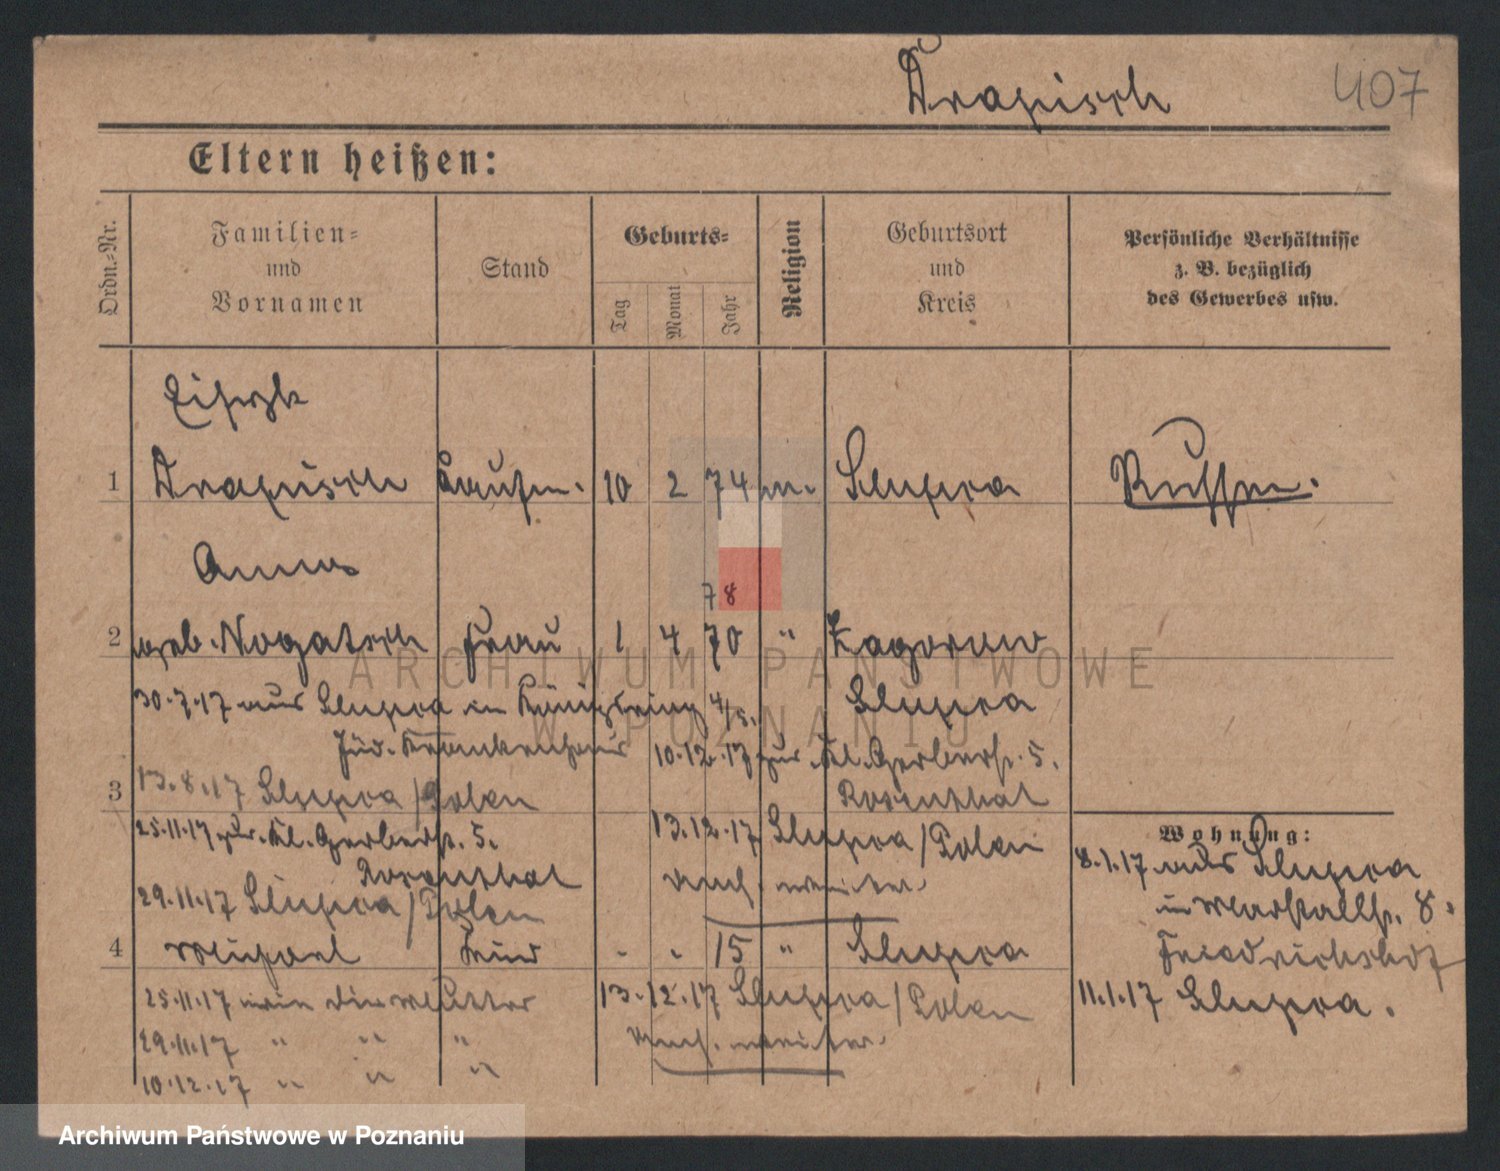 Drapisch
407
Eltern heißen:
Ordn.-Nr.
Familien-
und
Vornamen
Stand
Geburts-
Tag
Monat
Jahr
Religion
Geburtsort
und
Kreis
Persönliche Verhältnisse
z. B. bezüglich
des Gewerbes usw.
1
Drapisch
Kaufm.
10
2
74
m.
Slupca
Russen.
Anna
78
2
geb. Nogatsch
Frau
1
4
70
"
Zagorow
30.7.17 aus Slupca in Königsring 4/5.
Slupca
Jüd. Krankenhaus
10.12.17 zur. Kl. Gerberstr. 5.
Rosenthal
3
13.8.17 Slupca / Polen
25.11.17 zur. Kl. Gerberstr. 5.
Rosenthal
13.12.17 Slupca / Polen
29.11.17 Slupca / Polen
Wohnung:
8.1.17 aus Slupca
in Marstallstr. 8.
Friedrichshof
11.1.17 Slupca.
4
Kind
-
-
15
"
Slupca
25.11.17 wie die Mutter
13.12.17 Slupca / Polen
29.11.17 " " "
10.12.17 " " "
ARCHIWUM PAŃSTWOWE
W POZNANIU
Archiwum Państwowe w Poznaniu